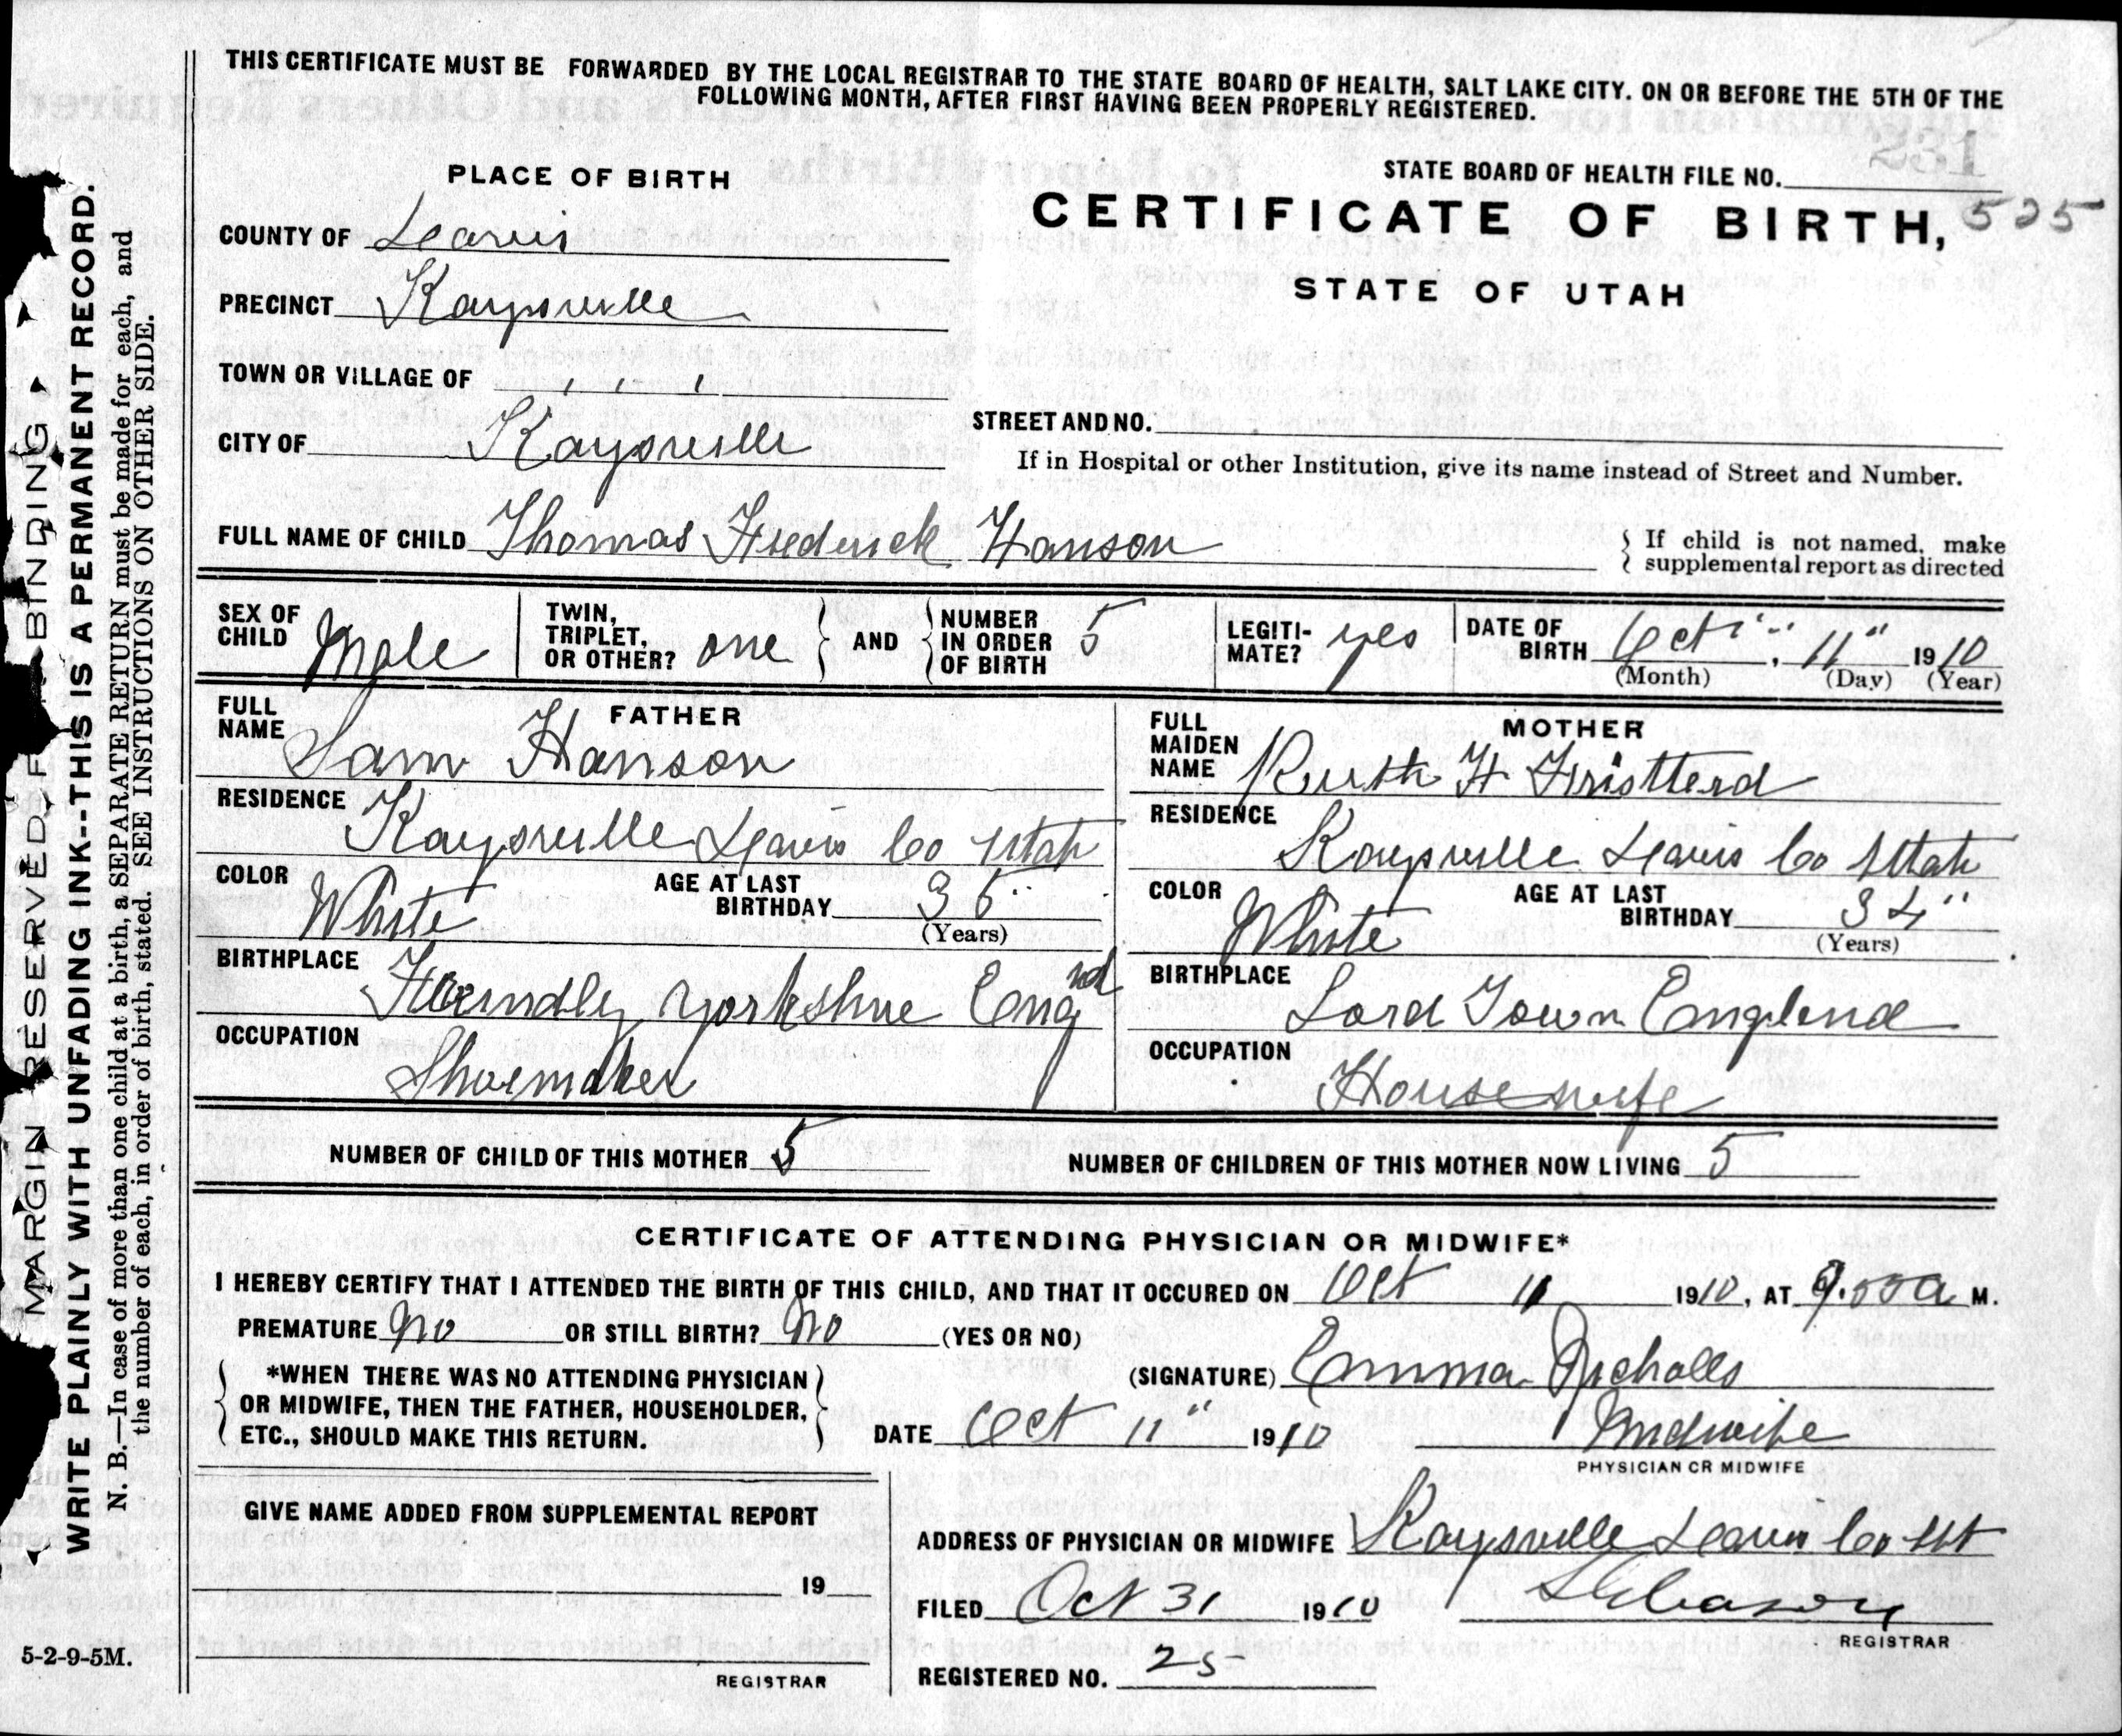 THIS CERTIFICATE MUST BE FORWARDED BY THE LOCAL REGISTRAR TO THE STATE BOARD OF HEALTH, SALT LAKE CITY. ON OR BEFORE THE 5TH OF THE
FOLLOWING MONTH, AFTER FIRST HAVING BEEN PROPERLY REGISTERED.
231
PLACE OF BIRTH
STATE BOARD OF HEALTH FILE NO.
CERTIFICATE OF BIRTH, 525
STATE OF UTAH
COUNTY OF Davis
PRECINCT Kaysville
TOWN OR VILLAGE OF
CITY OF Kaysville
STREET AND NO.
If in Hospital or other Institution, give its name instead of Street and Number.
FULL NAME OF CHILD Thomas Frederick Hanson
If child is not named, make
supplemental report as directed
SEX OF CHILD Male
TWIN, TRIPLET, OR OTHER? one
AND NUMBER IN ORDER OF BIRTH 5
LEGITI-MATE? yes
DATE OF BIRTH Oct 11" 1910
(Month) (Day) (Year)
FATHER
FULL NAME Sam Hanson
RESIDENCE Kaysville Davis Co Utah
COLOR White
AGE AT LAST BIRTHDAY 35
(Years)
BIRTHPLACE Yorkshire Engnd
OCCUPATION Shoemaker
MOTHER
FULL MAIDEN NAME Ruth H
RESIDENCE Kaysville Davis Co Utah
COLOR White
AGE AT LAST BIRTHDAY 34"
(Years)
BIRTHPLACE Town England
OCCUPATION Housewife
NUMBER OF CHILD OF THIS MOTHER 5
NUMBER OF CHILDREN OF THIS MOTHER NOW LIVING 5
CERTIFICATE OF ATTENDING PHYSICIAN OR MIDWIFE*
I HEREBY CERTIFY THAT I ATTENDED THE BIRTH OF THIS CHILD, AND THAT IT OCCURED ON Oct 11 1910, AT A M.
PREMATURE No OR STILL BIRTH? No (YES OR NO)
*WHEN THERE WAS NO ATTENDING PHYSICIAN
OR MIDWIFE, THEN THE FATHER, HOUSEHOLDER,
ETC., SHOULD MAKE THIS RETURN.
(SIGNATURE) Emma Nicholls
DATE Oct 11" 1910 Midwife
PHYSICIAN OR MIDWIFE
GIVE NAME ADDED FROM SUPPLEMENTAL REPORT
19
REGISTRAR
ADDRESS OF PHYSICIAN OR MIDWIFE Kaysville Davis Co Ut
FILED Oct 31 1910
REGISTRAR
REGISTERED NO. 25
5-2-9-5M.
MARGIN RESERVED F BINDING
WRITE PLAINLY WITH UNFADING INK--THIS IS A PERMANENT RECORD.
N. B.—In case of more than one child at a birth, a SEPARATE RETURN must be made for each, and
the number of each, in order of birth, stated. SEE INSTRUCTIONS ON OTHER SIDE.